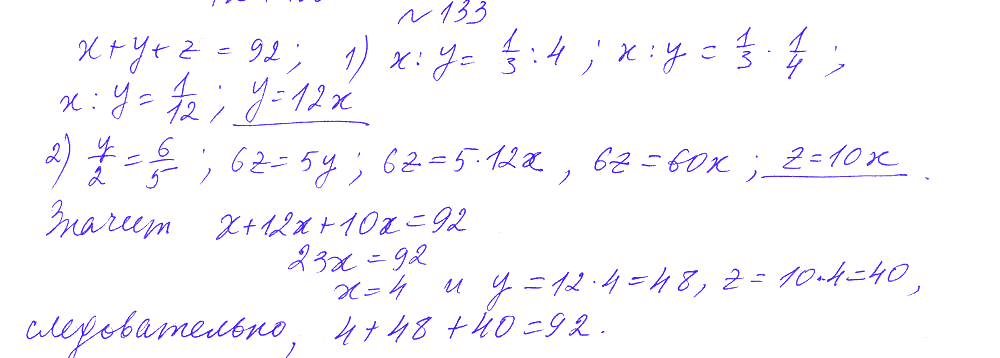 №133
x+y+z=92; 1) x:y=1/3:4; x:y=1/3·1/4;
x:y=1/12; y=12x
2) y/2=6/5; 6z=5y; 6z=5·12x, 6z=60x; z=10x.
Значит x+12x+10x=92
23x=92
x=4 и y=12·4=48, z=10·4=40,
следовательно, 4+48+40=92.